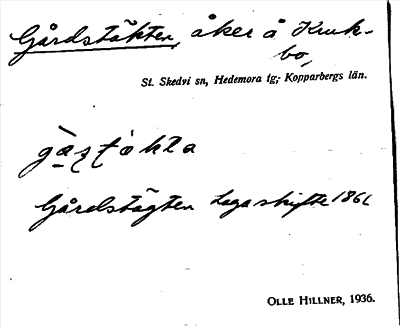 Gårdstäkten, åker å Kruk-
bo,
St. Skedvi sn, Hedemora tg; Kopparbergs län.
Gårdstägten Laga skifte 186
OLLE HILLNER, 1936.